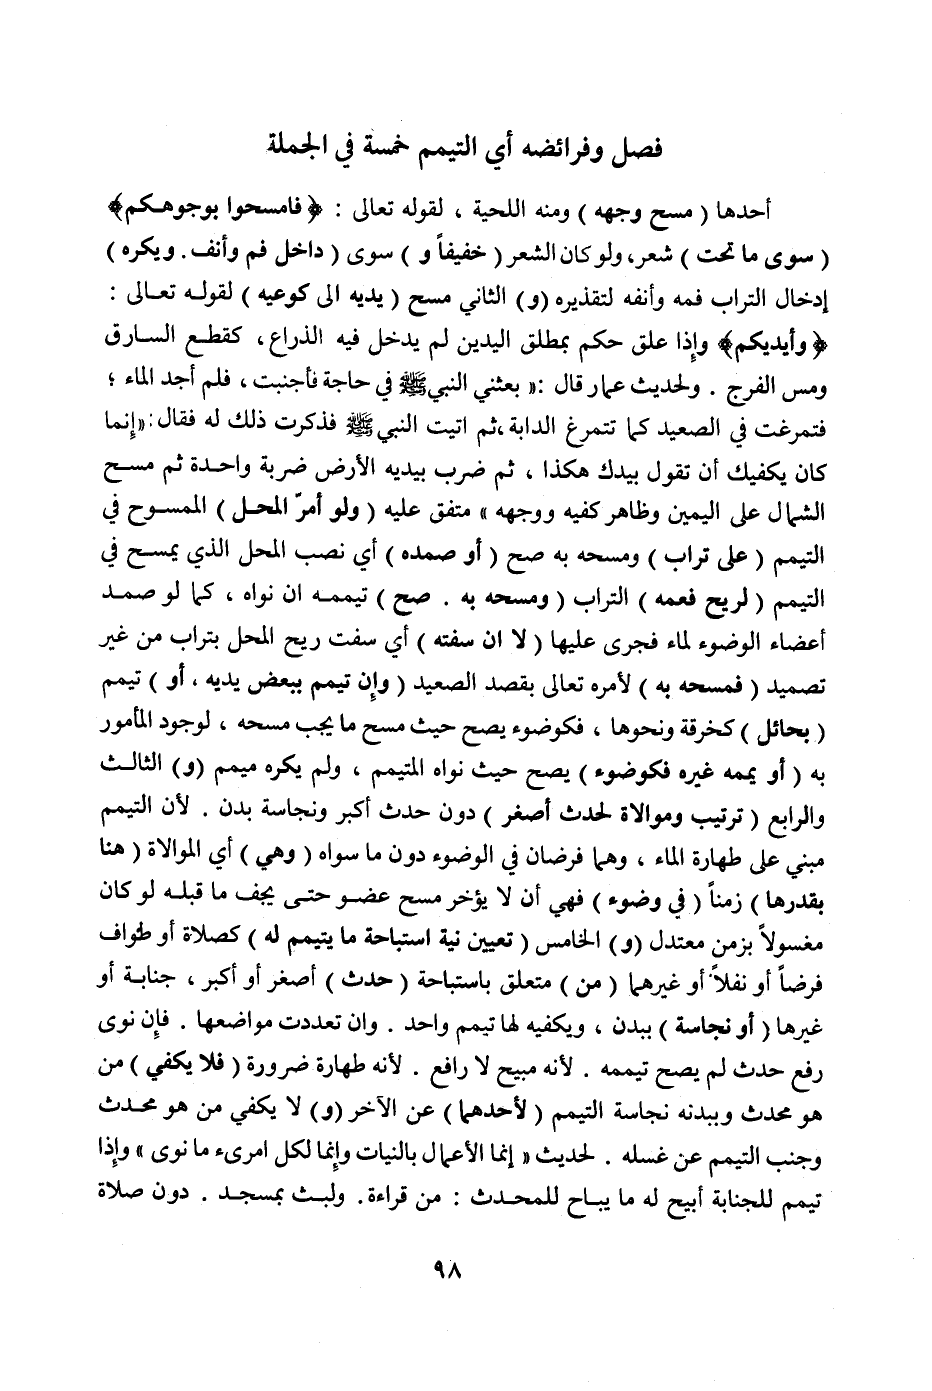 فصل وفرائضه أي التيمم خمسة في الجملة
أحدها ( مسح وجهه ) ومنه اللحية ، لقوله تعالى : ﴿ فامسحوا بوجوهكم﴾
( سوى ما تحت ) شعر، ولو كان الشعر ( خفيفاً و ) سوى ( داخل فم وأنف . ويكره )
إدخال التراب فمه وأنفه لتقذيره (و) الثاني مسح ( يديه الى كوعيه ) لقوله تعالى :
﴿ وأيديكم﴾ وإذا علق حكم بمطلق اليدين لم يدخل فيه الذراع ، كقطع السارق
ومس الفرج . ولحديث عمار قال :« بعثني النبي ﷺ في حاجة فأجنبت ، فلم أجد الماء ؛
فتمرغت في الصعيد كما تتمرغ الدابة ،ثم اتيت النبي ﷺ فذكرت ذلك له فقال :«إنما
كان يكفيك أن تقول بيدك هكذا ، ثم ضرب بيديه الأرض ضربة واحدة ثم مسح
الشمال على اليمين وظاهر كفيه ووجهه » متفق عليه ( ولو أمرّ المحل ) الممسوح في
التيمم ( على تراب ) ومسحه به صح ( أو صمده ) أي نصب المحل الذي يمسح في
التيمم ( لريح فعمه ) التراب ( ومسحه به . صح ) تيممه ان نواه ، كما لو صمد
أعضاء الوضوء لماء فجرى عليها ( لا ان سفته ) أي سفت ريح المحل بتراب من غير
تصميد ( فمسحه به ) لأمره تعالى بقصد الصعيد ( وإن تيمم ببعض يديه ، أو ) تيمم
( بحائل ) كخرقة ونحوها ، فكوضوء يصح حيث مسح ما يجب مسحه ، لوجود المأمور
به ( أو يممه غيره فكوضوء ) يصح حيث نواه المتيمم ، ولم يكره ميمم (و) الثالث
والرابع ( ترتيب وموالاة لحدث أصغر ) دون حدث أكبر ونجاسة بدن . لأن التيمم
مبني على طهارة الماء ، وهما فرضان في الوضوء دون ما سواه ( وهي ) أي الموالاة ( هنا
بقدرها ) زمناً ( في وضوء ) فهي أن لا يؤخر مسح عضو حتى يجف ما قبله لو كان
مغسولاً بزمن معتدل (و) الخامس ( تعيين نية استباحة ما يتيمم له ) كصلاة أو طواف
فرضاً أو نفلاً أو غيرهما ( من ) متعلق باستباحة ( حدث ) أصغر أو أكبر ، جنابة أو
غيرها ( أو نجاسة ) ببدن ، ويكفيه لها تيمم واحد . وان تعددت مواضعها . فإن نوى
رفع حدث لم يصح تيممه . لأنه مبيح لا رافع . لأنه طهارة ضرورة ( فلا يكفي ) من
هو محدث وببدنه نجاسة التيمم ( لأحدهما ) عن الآخر (و) لا يكفي من هو محدث
وجنب التيمم عن غسله . لحديث « إنما الأعمال بالنيات وإنما لكل امرىء ما نوى » وإذا
تيمم للجنابة أبيح له ما يباح للمحدث : من قراءة . ولبث بمسجد . دون صلاة
٩٨